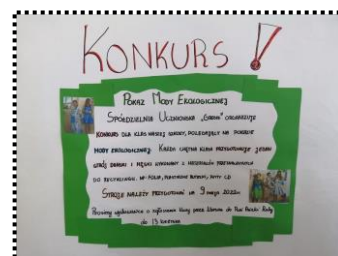 KONKURS !
POKAZ MODY EKOLOGICZNEJ
SPÓŁDZIELNIA UCZNIOWSKA „GABIK” ORGANIZUJE
KONKURS DLA KLAS NASZEJ SZKOŁY, POLEGAJĄCY NA POKAZIE
MODY EKOLOGICZNEJ. KAŻDA CHĘTNA KLASA PRZYGOTOWUJE JEDEN
STRÓJ DAMSKI I MĘSKI WYKONANY Z MATERIAŁÓW PRZEZNACZONYCH
DO RECYKLINGU, NP. FOLIA, PLASTIKOWE BUTELKI, PŁYTY CD
STROJE NALEŻY PRZYGOTOWAĆ NA 9 MAJA 2022r.
Prosimy o zgłaszanie klasy przez do Pani
do 13 kwietnia